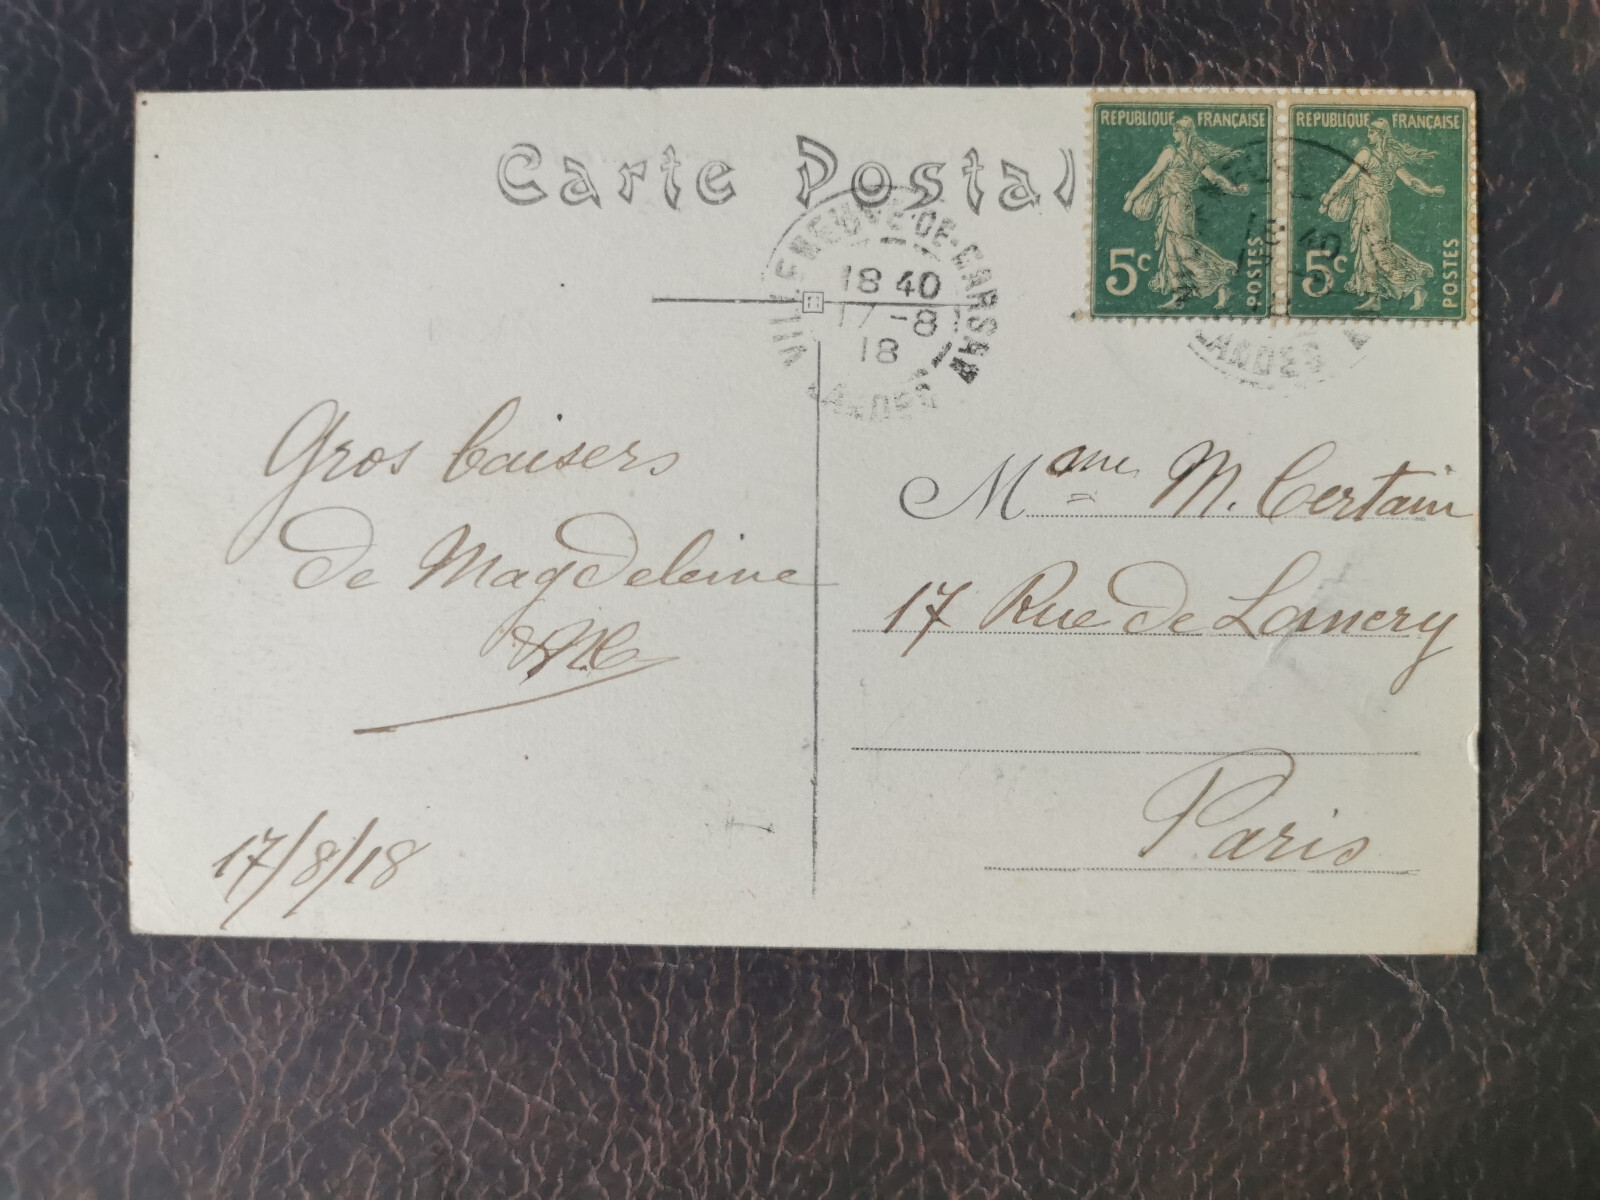 Carte Postal
RÉPUBLIQUE FRANÇAISE
5c
POSTES
RÉPUBLIQUE FRANÇAISE
5c
POSTES
VILLENEUVE-DE-MARSAN
18 40
17-8
18
LANDES
18 40
LANDES
Gros baisers
de Magdeleine
17/8/18
Mme M. Certain
17 Rue de Lancry
Paris